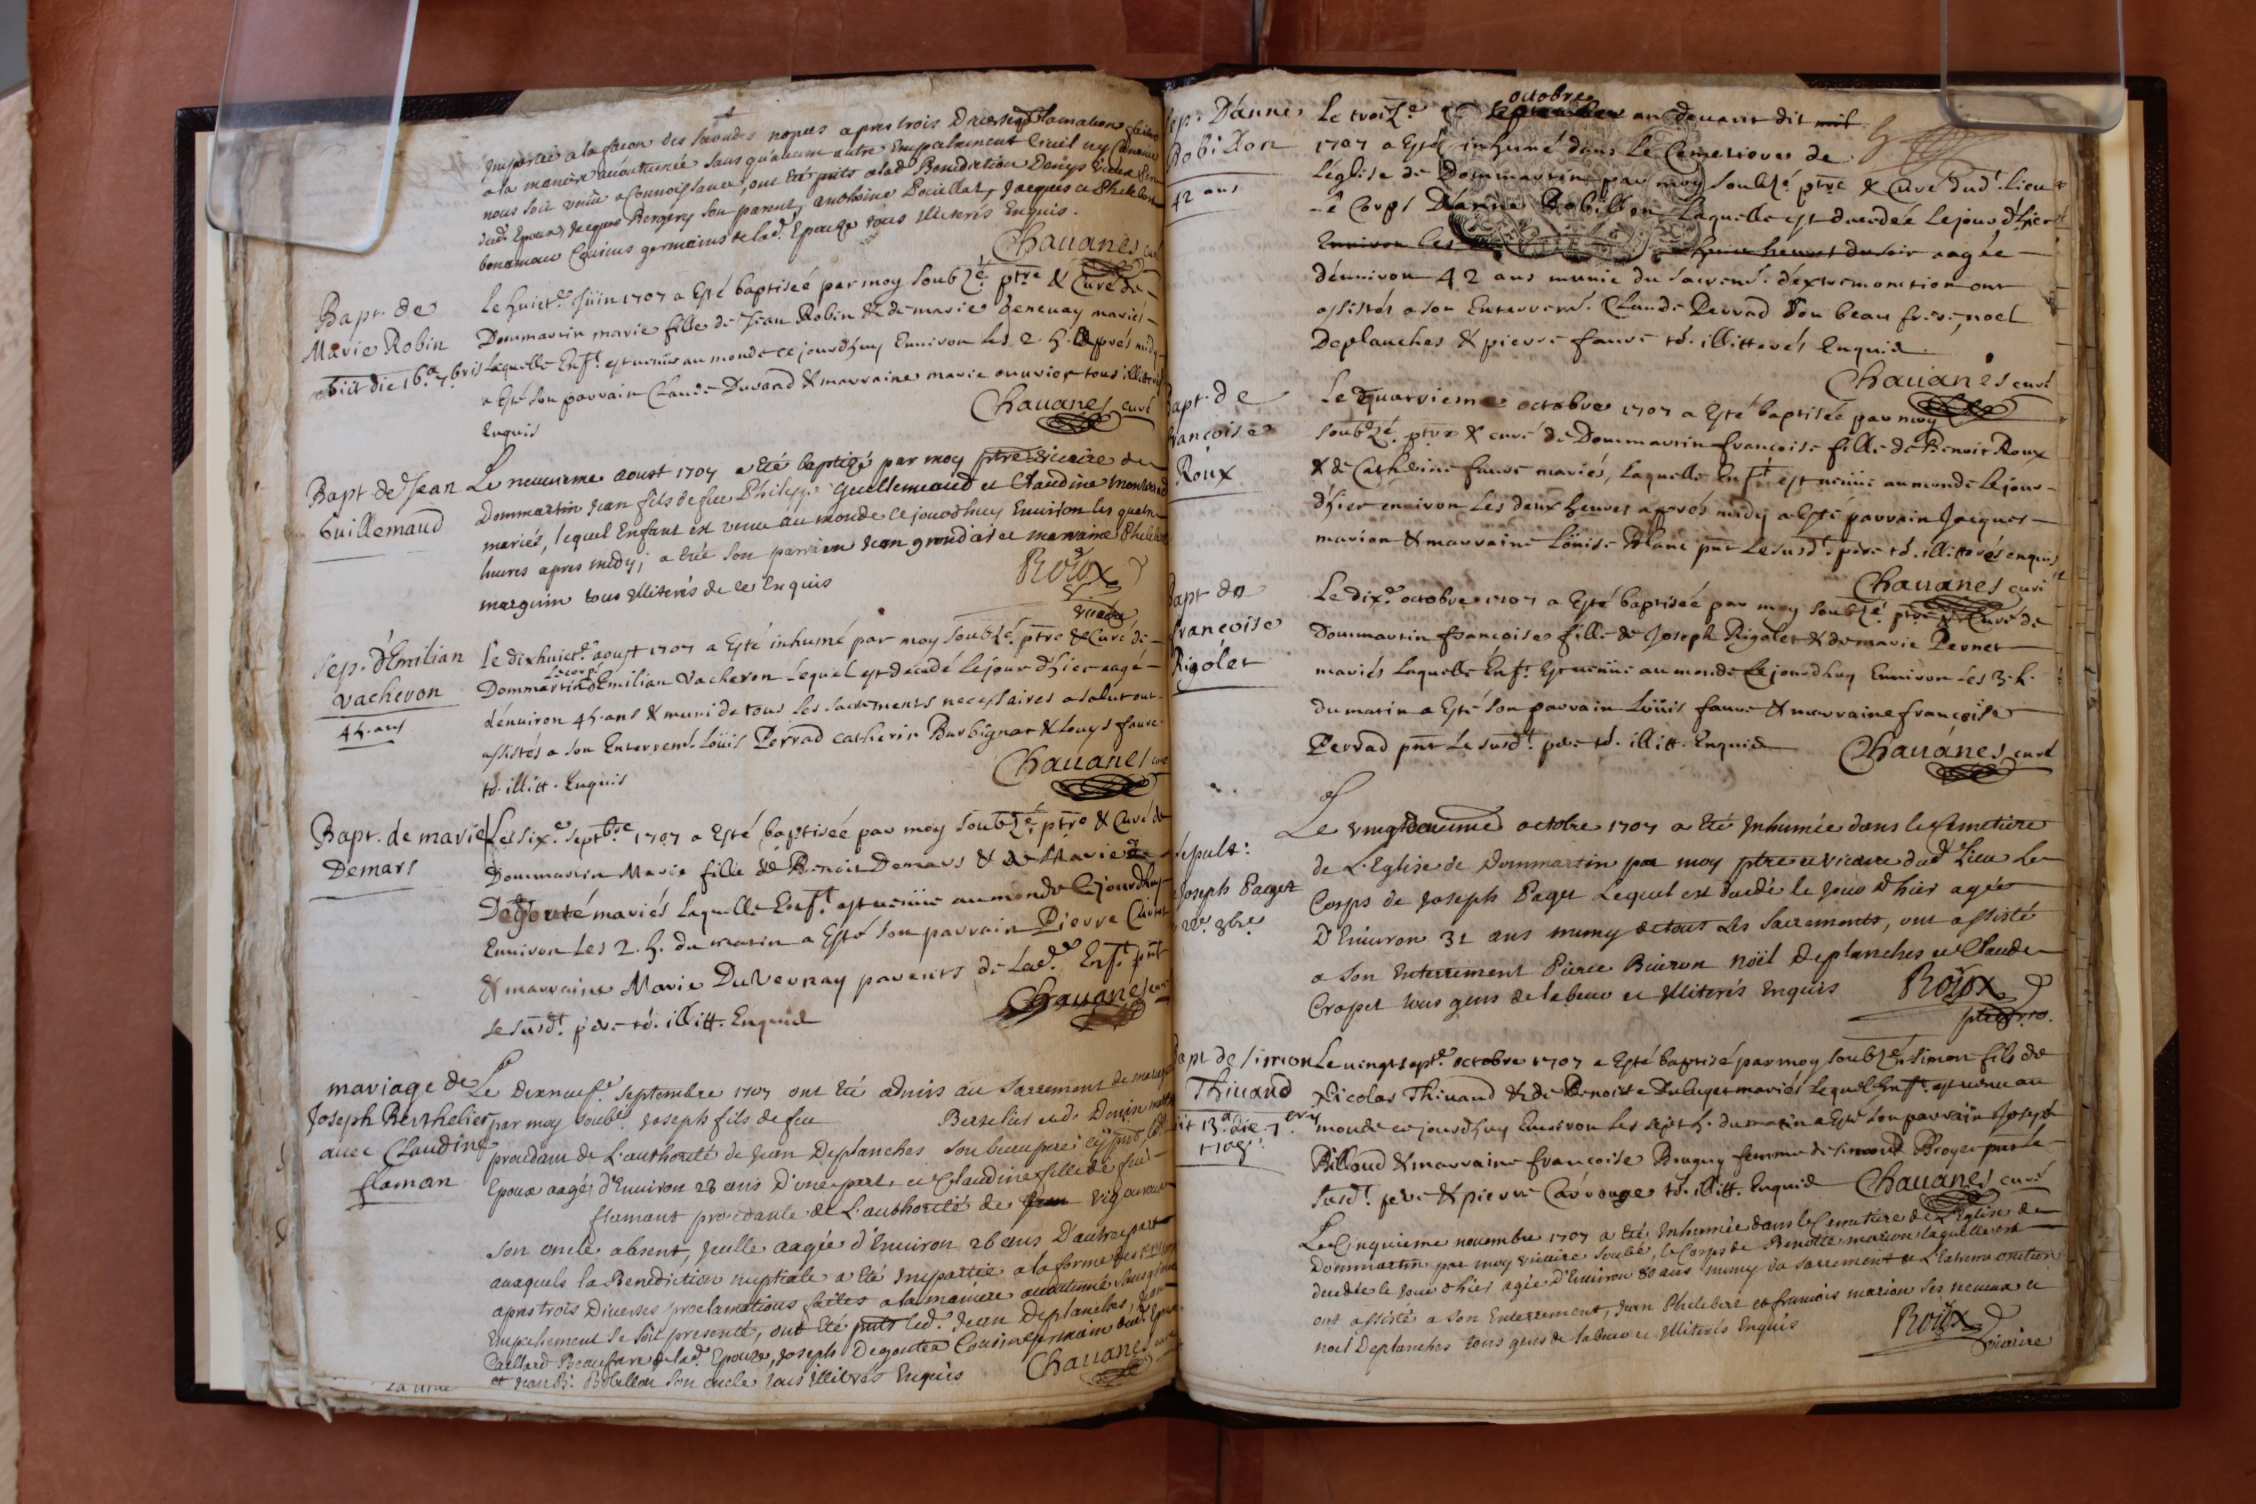 impartie a la façon des secondes nopces apres trois Diverses proclamations faites
a la maniere accoutumée sans qu'aucun autre Empechement Civil ny Canonique
nous soit venu a connoissance, ont été puts a lad. Benediction Denys
dud. Epoux, Jacques Bergery son parent, Anthoine Poeillat, Jacques et Philibert
bonamour Cousins germains de lad. Epouze tous illiterés Enquis.
Chauanes curé
Bapt. de
Marie Robin
obiit die 16.a 7bris
Le huict.e Juin 1707 a Esté baptiseé par moy soubz.é ptre & Curé de
Dommartin marie fille de Jean Robin & de marie genevay mariés
laquelle Enft. est venüe au monde ce jourdhuy Environ les 2 h. aprés midy
a Esté son parrain Claude Durand & marraine marie ouurier tous illitterés
Enquis
Chauanes curé
Bapt. de Jean
Guillemaud
Le neuuieme aoust 1707 a été baptizé par moy ptre vicaire de
Dommartin Jean fils de feu Philippe Guillemaud et Claudine monterrad
mariés, lequel Enfant est venu au monde ce jourdhuy Environ les quatre
heures apres midy, a été son parrain Jean grondit et marraine Philiberte
marguin tous illiterés de ce Enquis
Roüx
vicaire
Sep. d'Emilian
Vacheron
45. ans
Le dixhuict.e aoust 1707 a Esté inhumé par moy soubz.é ptre & Curé de
Dommartin le corps d'Emilian Vacheron lequel est decedé le jour d'hier aagé
d'enuiron 45 ans & muni de tous les sacrements necessaires a salut ont
assistés a son Enterremt. Loüis Perrad Catherin Burbignat & Louys faure
td. illitt. Enquis
Chauanes curé
Bapt. de marie
Demars
Le six.e septbre 1707 a Esté baptiseé par moy soubz.é ptre & Curé de
Dommartin Marie fille de Benoit Demars & de Marie
Degouté mariés laquelle Enft. est venüe au monde ce jourdhuy
Enuiron les 2. h. du matin a Esté son parrain Pierre
& marraine Marie DuVernay parents de lad. Enft. pnt
le susdt. pere td. illitt. Enquis
Chauanes curé
mariage de
Joseph Berthelier
auec Claudine
flaman
Le Dixneuf.e septembre 1707 ont été admis au Sacrement de mariage
par moy soubé. Joseph fils de feu Berthelier et de Denise
procedant de L'authorité de Jean Deplanches son beaupere icy pnt led.
Epoux aagé d'Enuiron 28 ans D'une part, et Claudine fille de feu
flamant procedante de L'authorité de Jean
son oncle absent, Jcelle aagée d'Enuiron 26 ans D'autre part
auxquels la Benediction nuptiale a été impartie a la forme des
apres trois Diverses proclamations faites a la maniere accoutumé sans qu'aucun
Empechement se soit presenté, ont été puts led. Jean Deplanches,
Caillard Beaufrere de lad. Epouze, Joseph Degoutea Cousin germain dud. Epoux
et Jean B. Bobillon son oncle tous illiterés Enquis
Chauanes curé
Sep. D'anne
Bobillon
42 ans
Le trois.e octobre an deuant dit
1707 a Esté inhumé dans le Cemetiere de
L'église de Dommartin par moy soubz.é ptre & Curé dudt. lieu
Le Corps D'anne Bobillon laquelle est decedeé le jour d'hier
Enuiron les heures du soir aageé
d'enuiron 42 ans munie du sacremt. d'extremonction ont
assistés a son Enterremt. Claude Perrad son beau frere, noel
Deplanches & pierre faure td. illitterés Enquis
Chauanes curé
Bapt. de
francoise
Roux
Le quatrieme octobre 1707 a Esté baptiseé par moy
soubz.é ptre & curé de Dommartin francoise fille de Benoit Roux
& de Catherine faure mariés, laquelle Enft. est venüe au monde le jour
d'hier enuiron les deux heures aprés midy a Esté parrain Jacques
marion & marraine Loüise Blanc pnt le susdt. pere td. illitterés enquis
Chauanes curé
Bapt de
francoise
Rigolet
Le dix.e octobre 1707 a Esté baptiseé par moy soubz.é ptre & Curé de
Dommartin francoise fille de Joseph Rigolet & de marie Pernet
mariés laquelle Enft. Est venüe au monde ce jourdhuy Enuiron les 3. h.
du matin a Esté son parrain Loüis faure & marraine francoise
Perrad pnt le susdt. pere td. illitt. Enquis
Chauanes curé
Sépult:
Joseph Paget
22e 8bre
Le vingtdeuxieme octobre 1707 a été Inhumée dans le Cemetiere
de L'Eglise de Dommartin par moy ptre et vicaire dud. Lieu le
Corps de Joseph Paget Lequel est decedé le jour d'hier agée
D'Enuiron 31 ans muny de tous les Sacrements, ont assisté
a son Enterrement Pierre Buiron noël Deplanches et Claude
Crapet tous gens de labeur et illiterés Enquis
Roüx
ptre vic.
Bapt de Simon
Thiuaud
obiit 13.a die 7bris
1708
Le vingtsept.e octobre 1707 a Esté baptizé par moy soubz.é Simon fils de
Nicolas Thiuaud & de Benoite Duluyet mariés lequel Enft. est venu au
monde ce jourdhuy Enuiron les sept h. du matin a Esté son parrain Joseph
Billoud & marraine francoise Bruguy femme de simond Broyer pnt le
susdt. pere & pierre Carrouge td. illitt. Enquis
Chauanes curé
Le Cinquieme nouembre 1707 a été Inhumée dans le Cemetiere de L'Eglise de
Dommartin par moy vicaire soubé, le Corps de Benoite marion laquelle est
decedée le jour d'hier agée d'Enuiron 80 ans muny du sacrement de L'extreme onction
ont assisté a son Enterrement, Jean Philibert et francois marion ses neueux et
noel Deplanches tous gens de labeur et illiterés Enquis
Roüx
vicaire